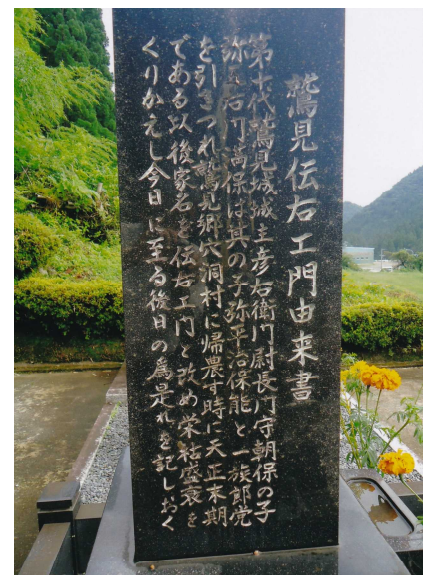 鷲見伝右エ門由来書
第十代鷲見城城主彦右衛門尉長門守朝保の子
弥五右門満保は其の子弥平治保能と一族郎党
を引きつれ鷲見郷穴洞村に帰農す時に天正末期
である以後家名を伝右エ門と改め栄枯盛衰を
くりかえし今日に至る後日の為是れを記しおく